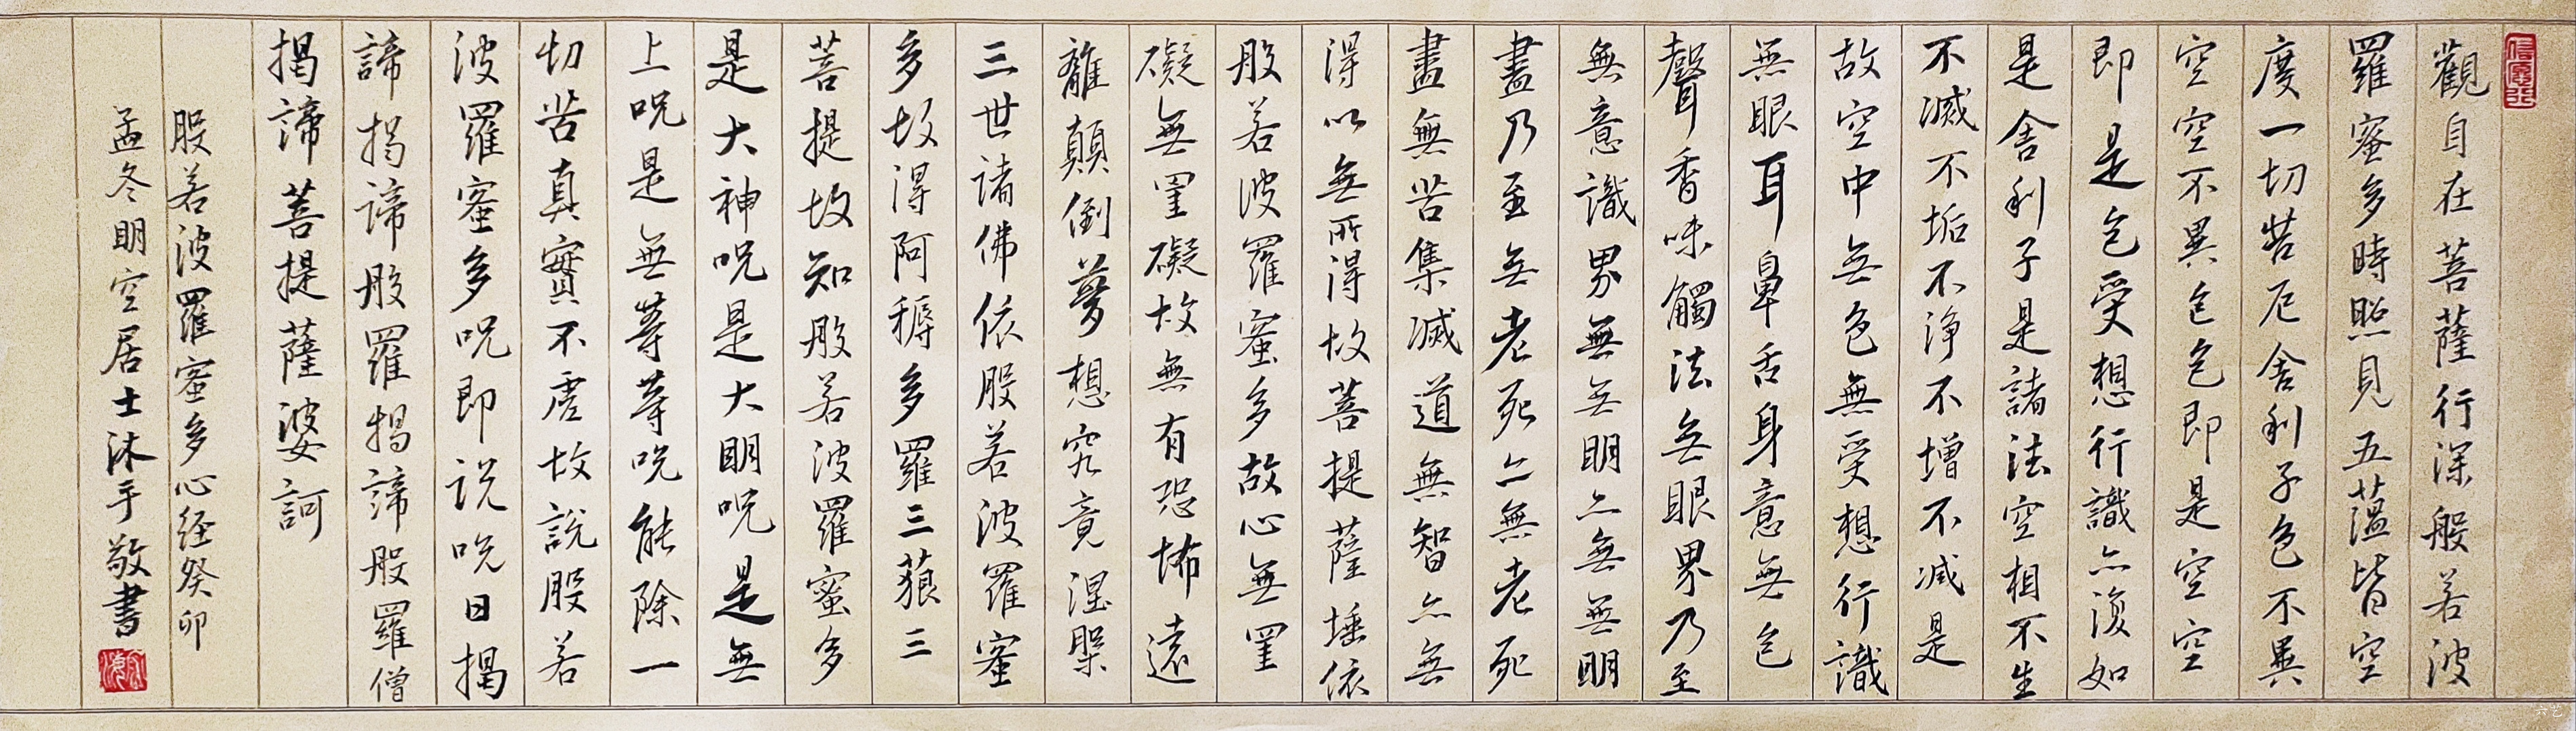 觀自在菩薩行深般若波
羅蜜多時照見五蘊皆空
度一切苦厄舍利子色不異
空空不異色色即是空空
即是色受想行識亦復如
是舍利子是諸法空相不生
不滅不垢不淨不增不減是
故空中無色無受想行識
無眼耳鼻舌身意無色
聲香味觸法無眼界乃至
無意識界無無明亦無無明
盡乃至無老死亦無老死
盡無苦集滅道無智亦無
得以無所得故菩提薩埵依
般若波羅蜜多故心無罣
礙無罣礙故無有恐怖遠
離顛倒夢想究竟涅槃
三世諸佛依般若波羅蜜
多故得阿耨多羅三藐三
菩提故知般若波羅蜜多
是大神咒是大明咒是無
上咒是無等等咒能除一
切苦真實不虛故說般若
波羅蜜多咒即说咒曰揭
諦揭諦般羅揭諦般羅僧
揭諦菩提薩婆訶
般若波羅蜜多心経癸卯
孟冬明空居士沐手敬書